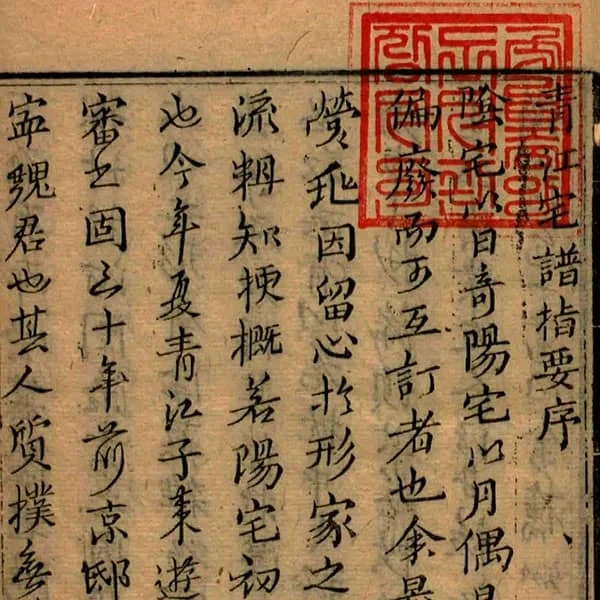 青江宅譜指要序
陰宅以日奇陽宅以月偶
偏廢而可互訂者也余
營地因留心於形家之
流輯知梗概若陽宅初
也今年夏青江子来遊
審之固三十年前京邸
寧魏君也其人質樸無